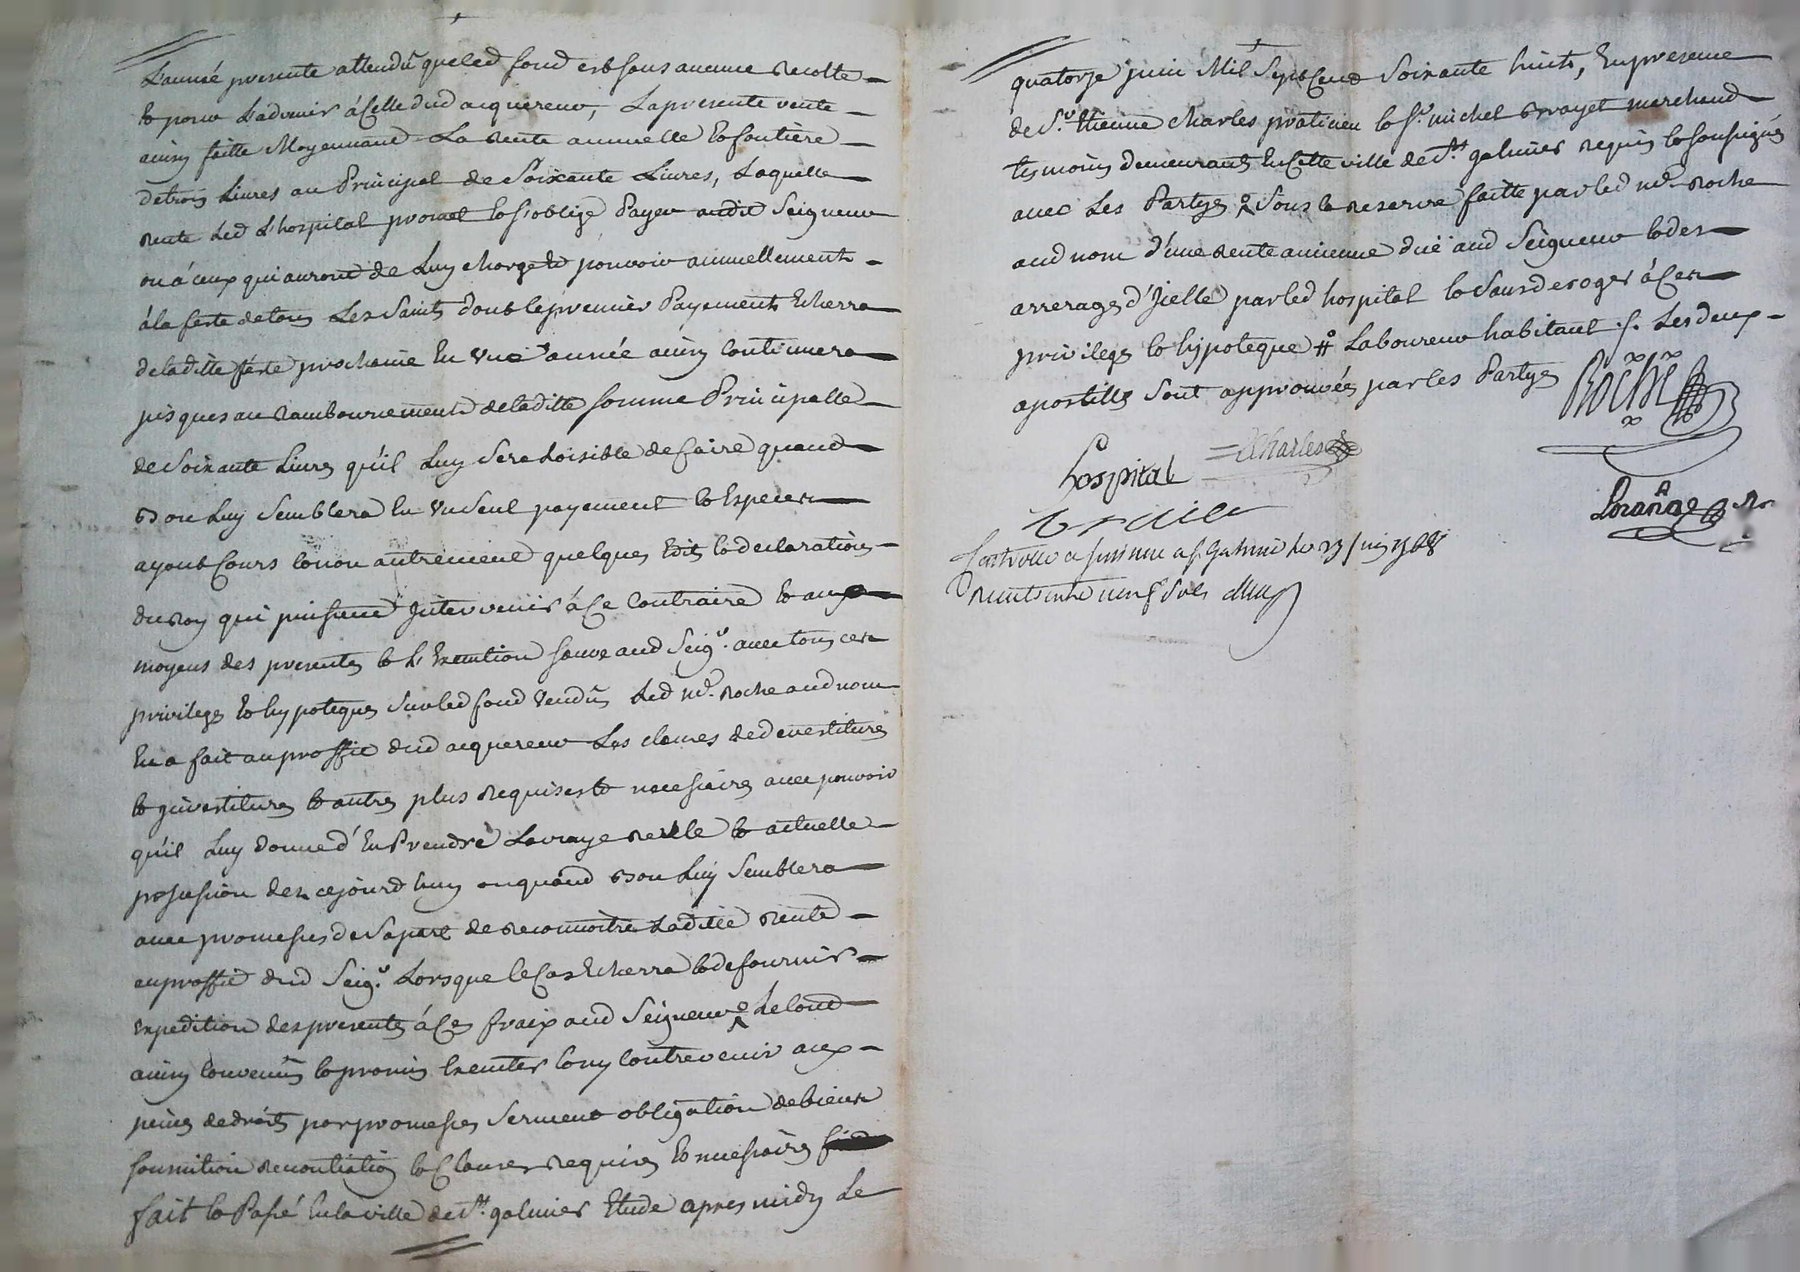 L'année presente attendû queled fond est sans aucune recolte
et pour L'advenir à Celle dud acquereur, La presente vente
ainsy faitte Moyennant La rente annuelle et fontière
de trois Livres au Principal de Soixante Livres, Laquelle
rente Led L'hospital promet et s'oblige Payer audit Seigneur
ou à ceux qui auront de Luy charge et pouvoir annuellement
à la feste de tous Les Saints dont le premier Payement Echerra
de laditte féste prochaine En une année ainsy Continuera
jusques au ramboursement de laditte somme Principalle
de Soixante Livres qu'il Luy Sera Loisible de faire quand
Bon Luy Semblera En un Seul payement et Especes
ayant Cours et non autrement quelques Edits et declarations
du Roy qui puissent Intervenir à Ce Contraire et aux
moyens des presentes et L'Execution sauve aud Seigr. avec tous ces
privileges et hypoteques Surled fond Vendû Led me. Roche aud nom
En a fait au proffit dud acquereur Les clauses de devestitures
et jnvestitures et autres plus requises et necessaires avec pouvoir
qu'il Luy donne d'En Prendre La vraye reelle et actuelle
possession dez ce jourd'huy ou quand Bon Luy Semblera
avec promesses de Sa part de reconnoitre Laditte Rente
au proffit dud Seigr. Lorsque le Cas Echerra et de fournir
expedition des presentes à Ces fraix aud Seigneur Le tout
ainsy Convenû et promis Executer et ny Contrevenir aux
peines de droits par promesses Serment obligation de biens
soumition renontiation et Clauses requises et necessaires
fait et Passé En la ville de St. galmier Etude apres midy Le
quatorze juin Mil Sept Cent Soixante huit, En presence
de Sr. Etienne Charles praticien et Sr. michel brayet marchand
tesmoins demeurants En Cette ville de St. galmier requis et soussignés
avec Les Partyes Sous la reserve faitte par led me. Roche
aud nom d'une rente ancienne düe aud Seigneur et des
arrerages d'Jcelle par led hospital et Sans deroger à Ces
privileges et hypoteque # Laboureur habitant ./. Les deux
apostilles Sont approuvées par les Partyes
ROCHE
Charles
hospital
Lorange Nre
Controllé a St Galmier le 23 juin 1768
Reçu neuf Sols